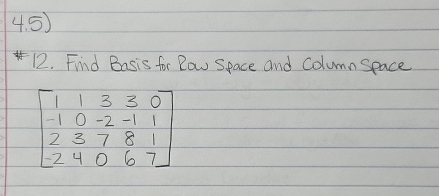 4.5)
#12. Find Basis for Row Space and Column Space
1 1 3 3 0
-1 0 -2 -1 1
2 3 7 8 1
-2 4 0 6 7